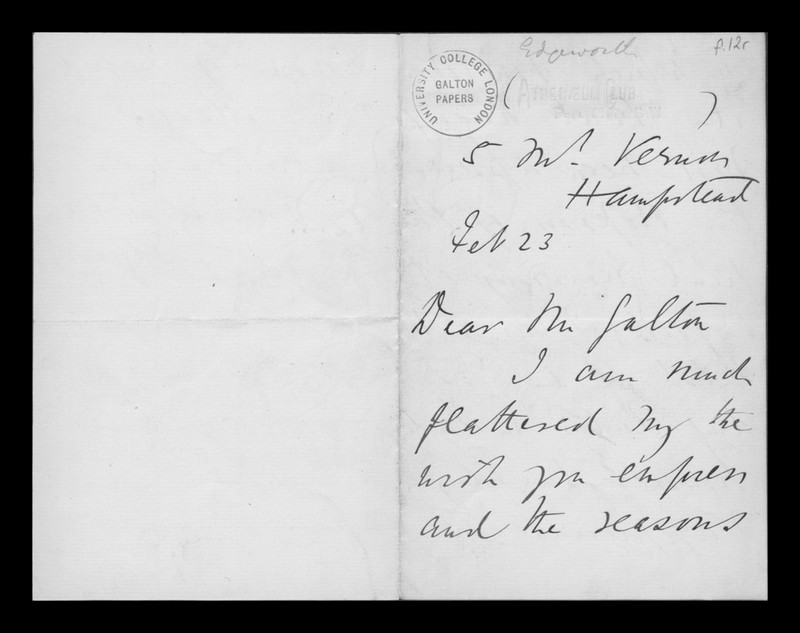 Edgeworth
f.12r
UNIVERSITY COLLEGE LONDON
GALTON
PAPERS
( ATHENÆUM CLUB )
5 Mt. Vernon
Hampstead
Feb 23
Dear Mr Galton
I am much
flattered by the
wish you express
and the reasons